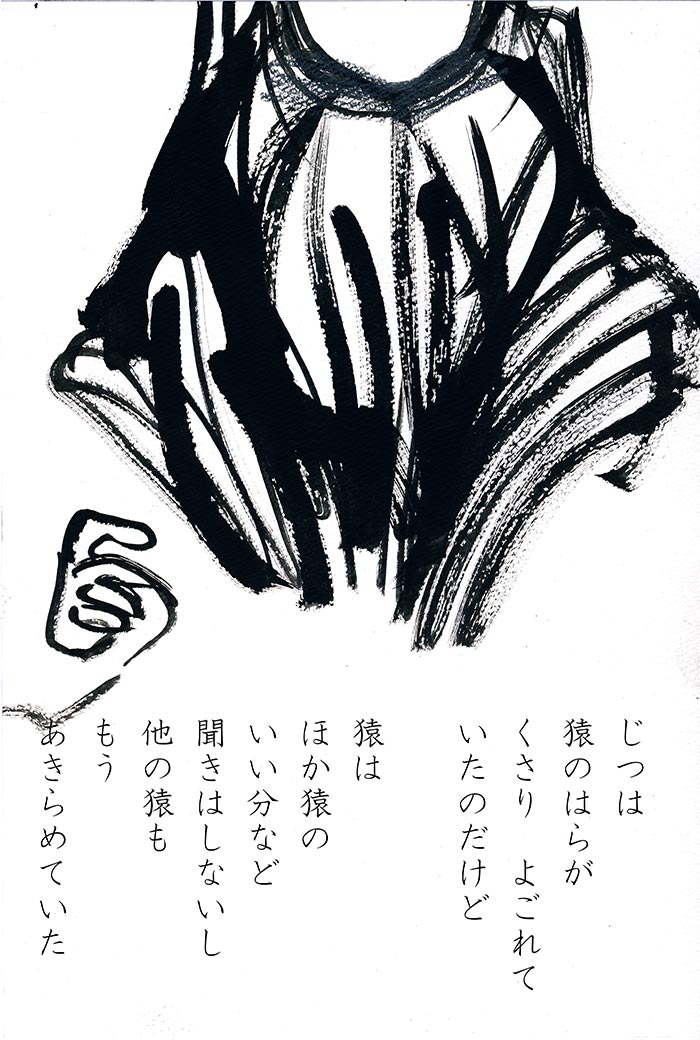 じつは
猿のはらが
くさり　よごれて
いたのだけど
猿は
ほか猿の
いい分など
聞きはしないし
他の猿も
もう
あきらめていた